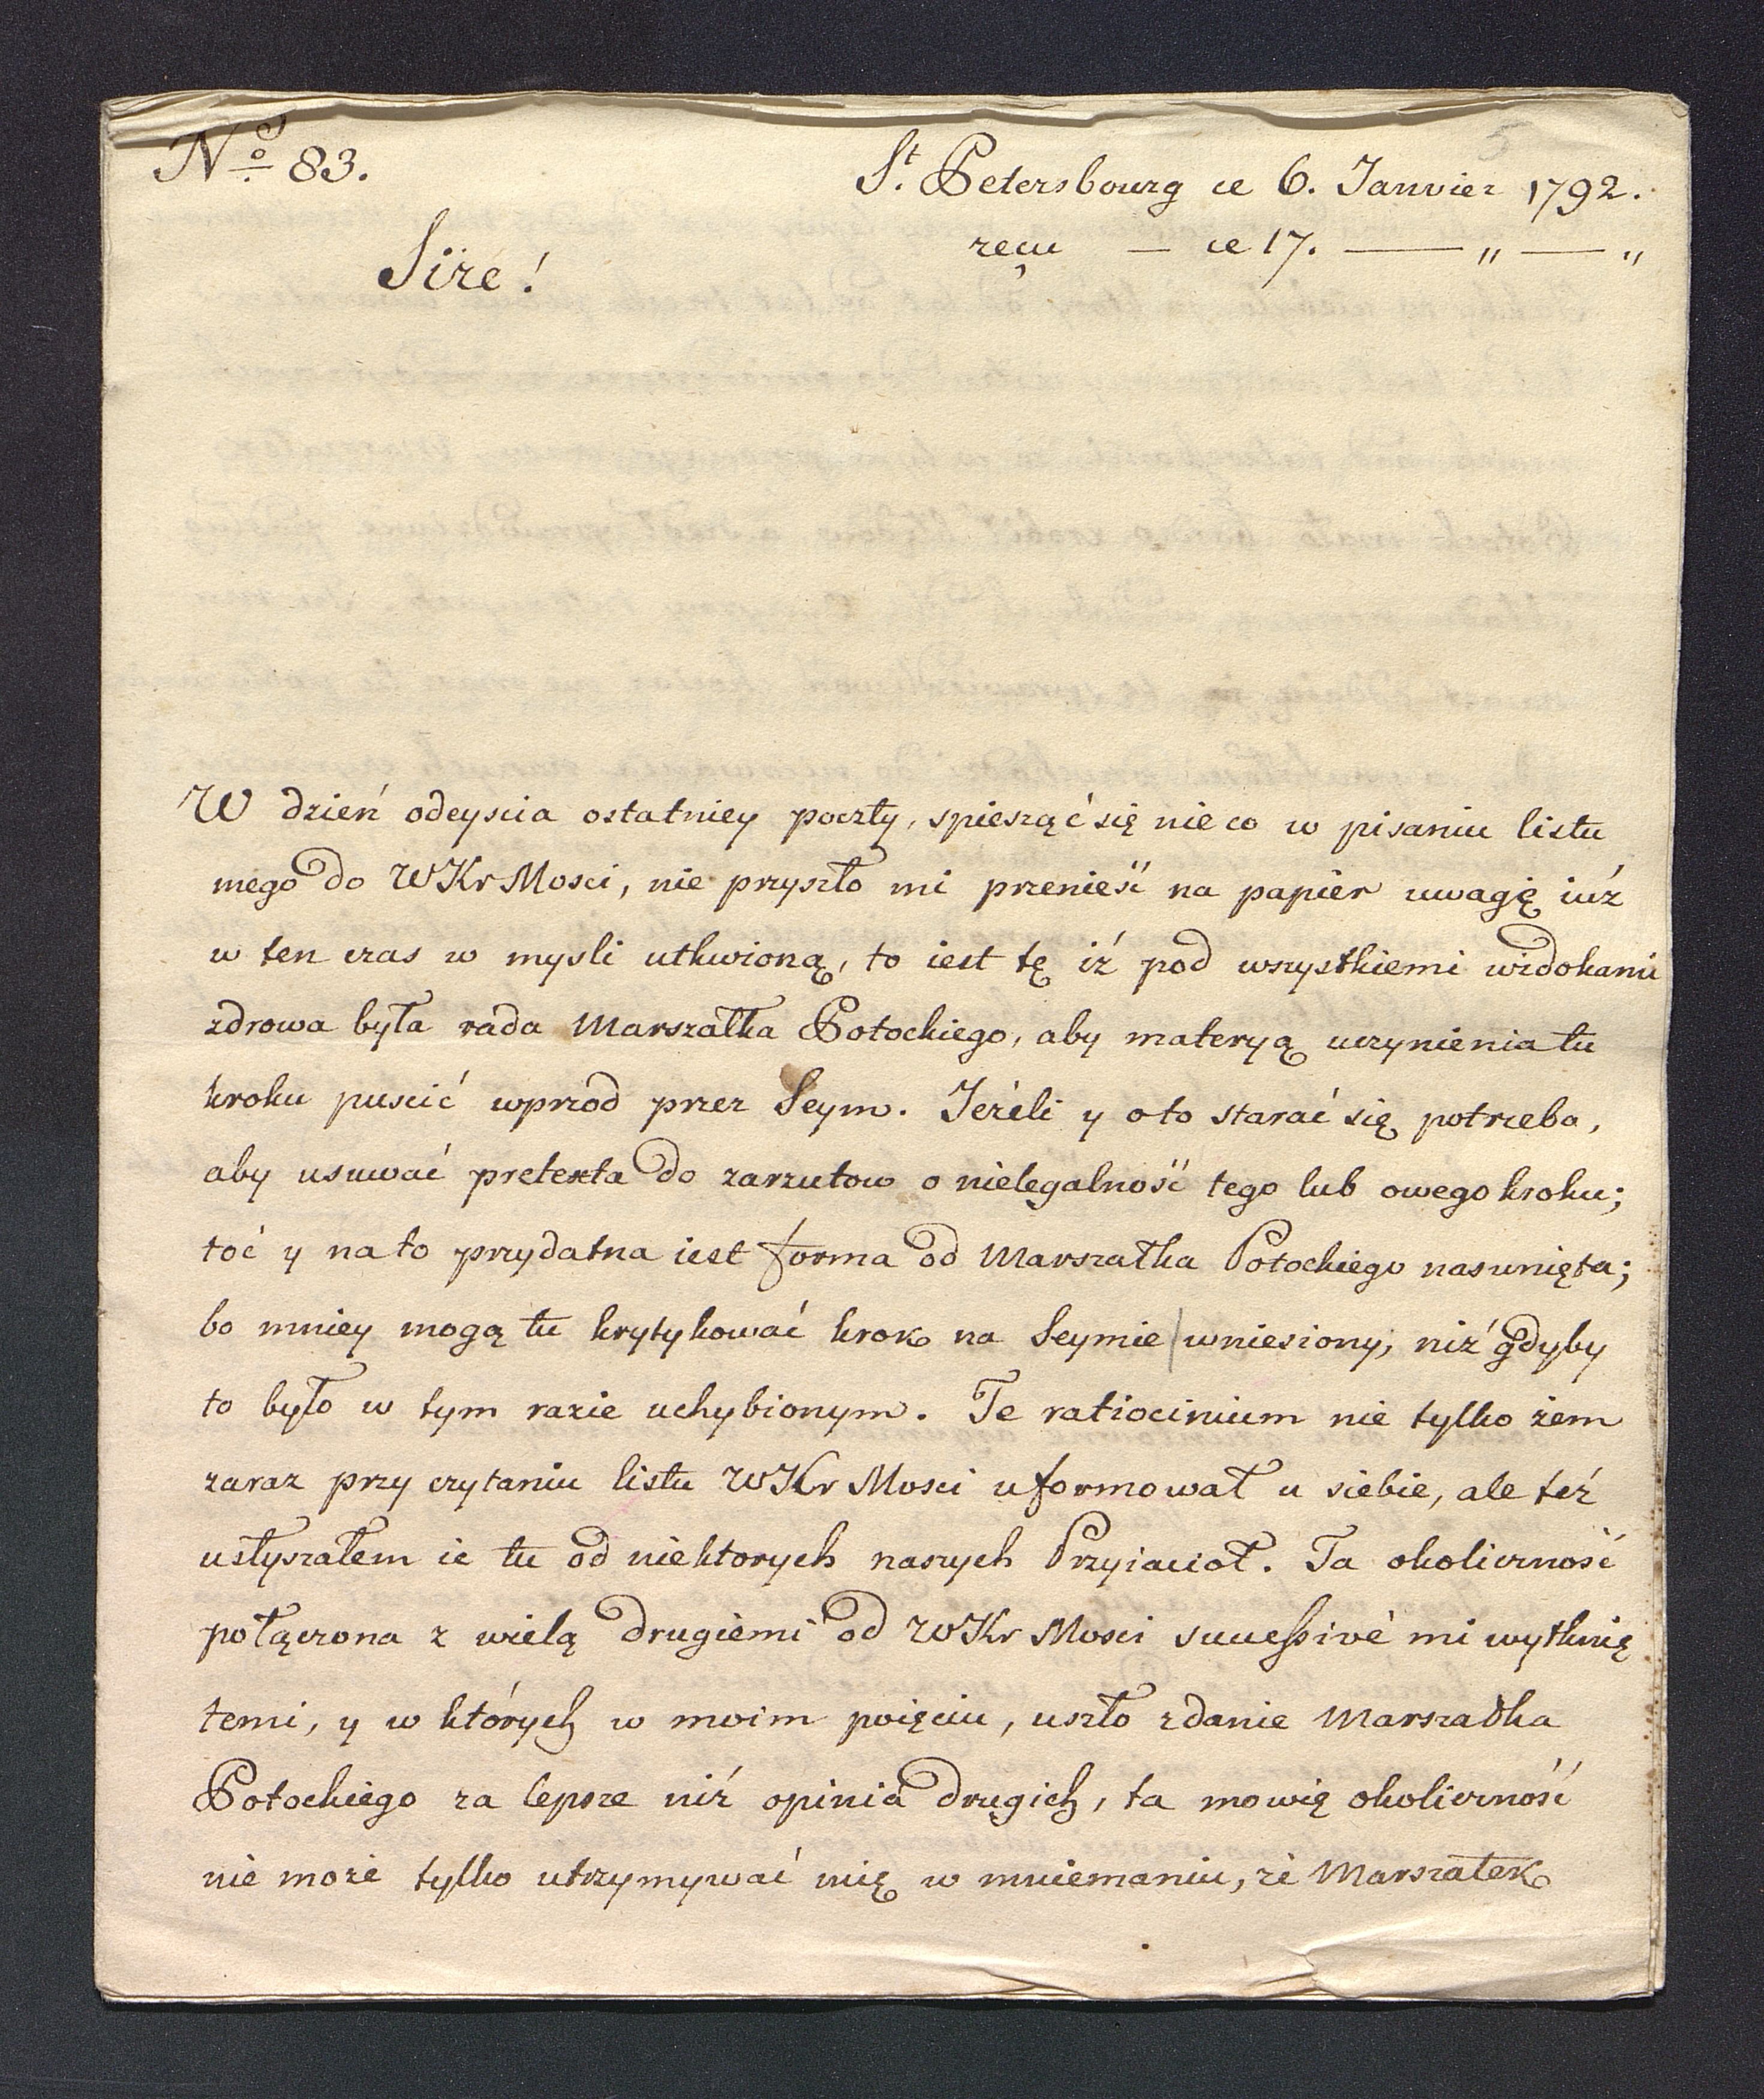 No 83.
St. Petersbourg ce 6. Janvier 1792.
reçu — ce 17. — " — "
Sire!
W dzień odeyscia ostatniey poczty, spiesząć się nieco w pisaniu listu
mego do WKrMosci, nie przyszło mi przenieść na papier uwagę iuż
w ten czas w mysli utkwioną, to iest tę iż pod wszystkiemi widokami
zdrowa była rada Marszałka Potockiego, aby materyą uczynienia tu
kroku puscić wprzod przez Seym. Jeżeli y oto starać się potrzeba,
aby usuwać pretexta do zarzutow o nielegalność tego lub owego kroku;
toć y na to przydatna iest forma od Marszałka Potockiego nasunięta;
bo mniey mogą tu krytykować krok na Seymie wniesiony, niż gdyby
to było w tym razie uchybionym. Te ratiocinium nie tylko żem
zaraz przy czytaniu listu WKr Mosci uformował u siebie, ale też
usłyszałem ie tu od niektorych naszych Przyiacioł. Ta okoliczność
połączona z wielą drugiemi od WKr Mosci successivé mi wytknię
temi, y w których w moim poięciu, uszło zdanie Marszałka
Potockiego za lepsze niż opinia drugich, ta mowię okoliczność
nie może tylko utrzymywać mię w mniemaniu, że Marszałek